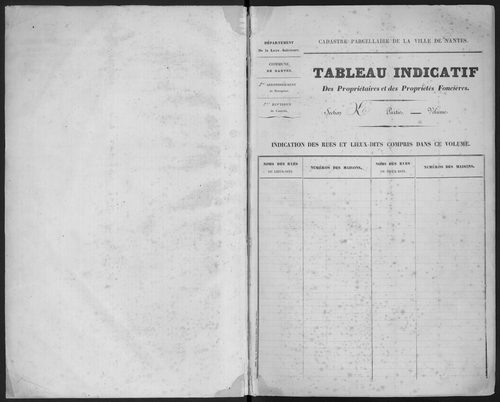 CADASTRE PARCELLAIRE DE LA VILLE DE NANTES.
DÉPARTEMENT
De la Loire-Inférieure.
COMMUNE
DE NANTES.
ARRONDISSEMENT
DIVISION
TABLEAU INDICATIF
Des Propriétaires et des Propriétés Foncières.
Section X Partie — Volume
INDICATION DES RUES ET LIEUX-DITS COMPRIS DANS CE VOLUME.
NOMS DES RUES
OU LIEUX-DITS.
NUMÉROS DES MAISONS.
NOMS DES RUES
OU LIEUX-DITS.
NUMÉROS DES MAISONS.